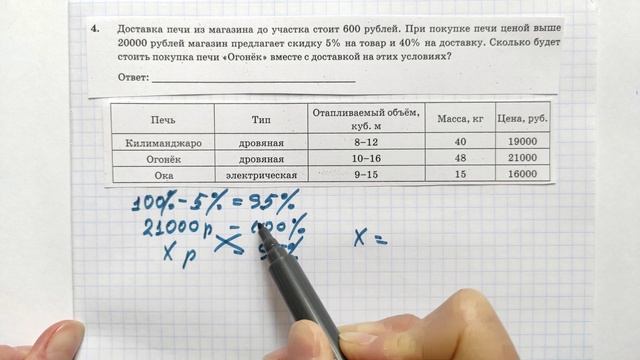 4. Доставка печи из магазина до участка стоит 600 рублей. При покупке печи ценой выше
20000 рублей магазин предлагает скидку 5% на товар и 40% на доставку. Сколько будет
стоить покупка печи «Огонёк» вместе с доставкой на этих условиях?
Ответ:
Печь Тип Отапливаемый объём, куб. м Масса, кг Цена, руб.
Килиманджаро дровяная 8–12 40 19000
Огонёк дровяная 10–16 48 21000
Ока электрическая 9–15 15 16000
100% - 5% = 95%
21000 р - 100%
х р %
х =